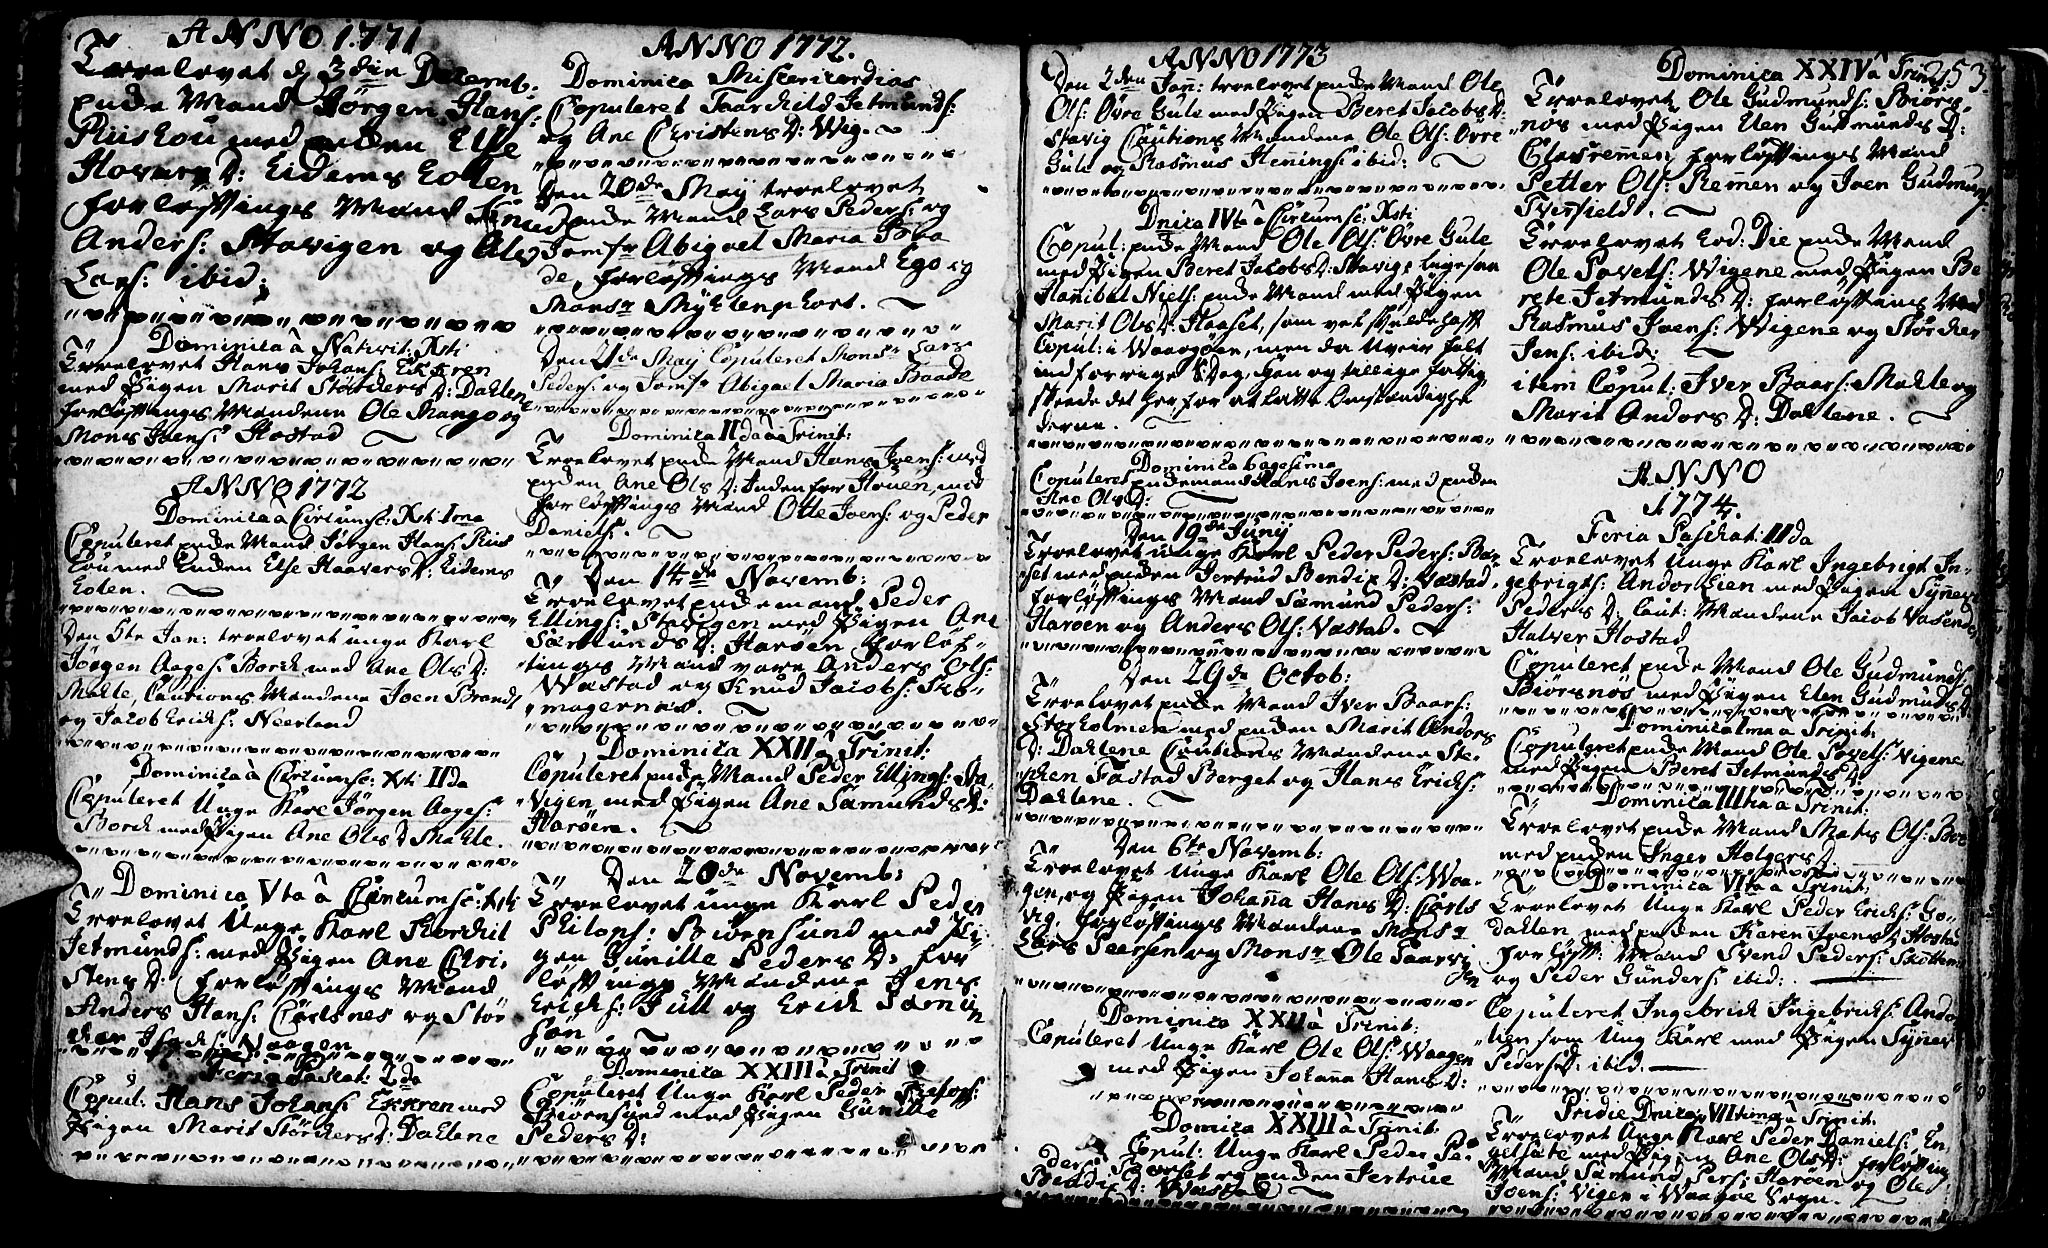 ANNO 1771
Troelovet d 3die Decemb:
Enke Mand Jörgen Hans:
Riiskou med Enken Else
Hovers D: Eidems Eoten
forlöftings Mænd Knud
Anders: Stavigen og Ale
Lars: ibid:
Dominica à Nativit: Xsti
Troelovet Hans Johans: Ekkren
med Pigen Marit Störkers D: Dahlene
forlöftings Mændene Ole Mango og
Mons Joens: Hostad
ANNO 1772
Dominica à Circumsc: Xsti Ima
Copuleret Enke Mand Jörgen Hans: Riis
kou med Enken Else Haavers D: Eidems
Eoten.
Den 5te Jan: troelovet unge Karl
Jörgen Aages: Borch med Ane Ols D:
Mahle, Cautions Mændene Joen Brands
og Jacob Erichs: Neerland
Dominica à Circumsc: Xti IIda
Copuleret Unge Karl Jörgen Aages:
Borch med Pigen Ane Ols D Mahle.
Dominica Vta à Circumsc: Xsti
Troelovet Unge Karl Thorchil
Jetmunds: med Pigen Ane Chri-
stens D: forlöftings Mænd
Anders Hans: Carlsnes og Stör
cher Isachs: Naagen
Feria Paschat: 2da
Copul: Hans Johans: Ekkren med
Pigen Marit Störkers D: Dahlene
ANNO 1772.
Dominica Misericordias
Copuleret Taarchild Jetmunds:
og Ane Christens D: Wig.
Den 20de Maÿ troelovet
Enke Mand Lars Peders: og
Jomfr Abigael Maria Baa
de, forlöftings Mænd Ego og
Monsr Mÿhlenphort.
Den 21de Maÿ Copuleret Monsr Lars
Peders: og Jomfr Abigael Maria Baade
Dominica IIda à Trinit:
Troelovet Enke Mand Hans Joens: med
Enken Ane Ols D: Indenfor Houen, med
forlöftings Mænd Otte Joens: og Peder
Daniels.
Den 14de Novemb:
Troelovet Enkemand Peder
Ellings: Stavigen med Pigen Ane
Sæmunds D: Haröen forlöf-
tings Mænd vare Anders Ols:
Wæstad og Knud Jacobs: Skö-
magernes.
Dominica XXII à Trinit:
Copuleret Enke Mand Peder Ellings: Sta
vigen med Pigen Ane Samunds D:
Haröen.
Den 20de Novemb:
Troelovet unge Karl Peder
Philops: Biörnsund med Pi-
gen Gunille Peders D: for
löftings Mændene Jens
Erichs: Jull og Erich Samu
son
Dominica XXIII à Trinit
Copuleret Unge Karl Peder Philops:
Biörnsund med Pigen Gunille
Peders D:
ANNO 1773
Den 2den Jan: troelovet Enke Mand Ole
Ols: Övre Gule med Pigen Beret Jacobs D:
Stavig Cautions Mændene Ole Ols: Övre
Gule og Rasmus Hennings: ibid:
Dnica IVta à Circumsc: Xsti
Copul: Enke Mand Ole Ols: Övre Gule
med Pigen Beret Jacobs D: Stavig; ligesaa
Hanibal Niels: Enke Mand med Pigen
Marit Ols D: Haaset, som vel skulde haft
Copul: i Waagöen, men da Uveir falt
ind forrige S: Dag, igien og tillige fattig,
skeede det her, for at lette Omstændighe
derne.
Dominica 6agesima
Copuleret Enkemand Hans Joens: med Enken
Ane Ols D:
Den 9de Junÿ
Troelovet unge Karl Peder Peders: Bar
set med Enken Jertrud Bendix D: Wæstad.
forlöftings Mænd Sæmund Peders:
Haröen og Anders Ols: Wæstad.
Den 29de Octob:
Troelovet Enke Mand Iver Baars:
Storholmen med Enken Marit Andors
D: Dahlene Cautions Mændene Ste-
phen Tastad Berget og Hans Erichs:
Dahlene.
Den 6te Novemb:
Troelovet Unge Karl Ole Ols: Waa-
gen, og Pigen Johanna Hans D: Carls
vig. forlöftings Mændene Monsr
Lars Peersen og Monsr Ole Faarse
Dominica XXII à Trinit:
Copuleret Unge Karl Ole Ols: Waagen
med Pigen Johanna Hans D:
Domica XXIII à Trinit:
Copul: Unge Karl Peder Pe-
ders: Barset og Enken Jertrue
Bendix D: Wæstad
253.
Dominica XXIV à Trinit:
Troelovet Ole Gudmunds: Biörs-
nös med Pigen Elen Gudmunds D:
Claoremen, forlöftings Mænd
Petter Ols: Remen og Joen Gudmunds:
Tverfield.
Troelovet Eod: Die Enke Mand
Ole Povels: Wigene med Pigen Be
rete Jetmunds D: forlöftins Mænd
Rasmus Joens: Wigene og Störcker
Jens: ibid:
item Copul: Iver Baars: Mahle og
Marit Andors D: Dahlene.
ANNO
1774.
Feria Paschat: IIda
Troelovet Unge Karl Ingebrigt In-
gebrigts: Andor Lien med Pigen Synev
Peders D: Caut: Mændene Jacob Vasende
Halver Hostad
Copuleret Enke Mand Ole Gudmunds:
Biörsnös med Pigen Elen Gudmunds D
Dominica Ima à Trinit:
Copuleret Enke Mand Ole Povels: Vigene
med Pigen Beret Jetmunds D:
Dominica IIItia à Trinit:
Troelovet Enke Mand Mats Ols: Bor
med Enken Inger Holgers D:
Dominica VIta à Trinit:
Troelovet Unge Karl Peder Erichs: Go-
dahlen med Enken Karen Joens D: Hostad
forlöft: Mænd Svend Peders: Skotten
og Peder Gunders: ibid:
Copuleret Ingebrich Ingebrichs: Ando
Lien som Ung Karl med Pigen Synev
Peders D: ibid.
Pridie Dnica VIItima à Trinit:
Troelovet Unge Karl Peder Daniels: En-
gelsæte med Pigen Ane Ols D: forlöfting
Mænd Samund Pers: Haröen og Ole
Joens: Vigen i Waagöe Sogn.